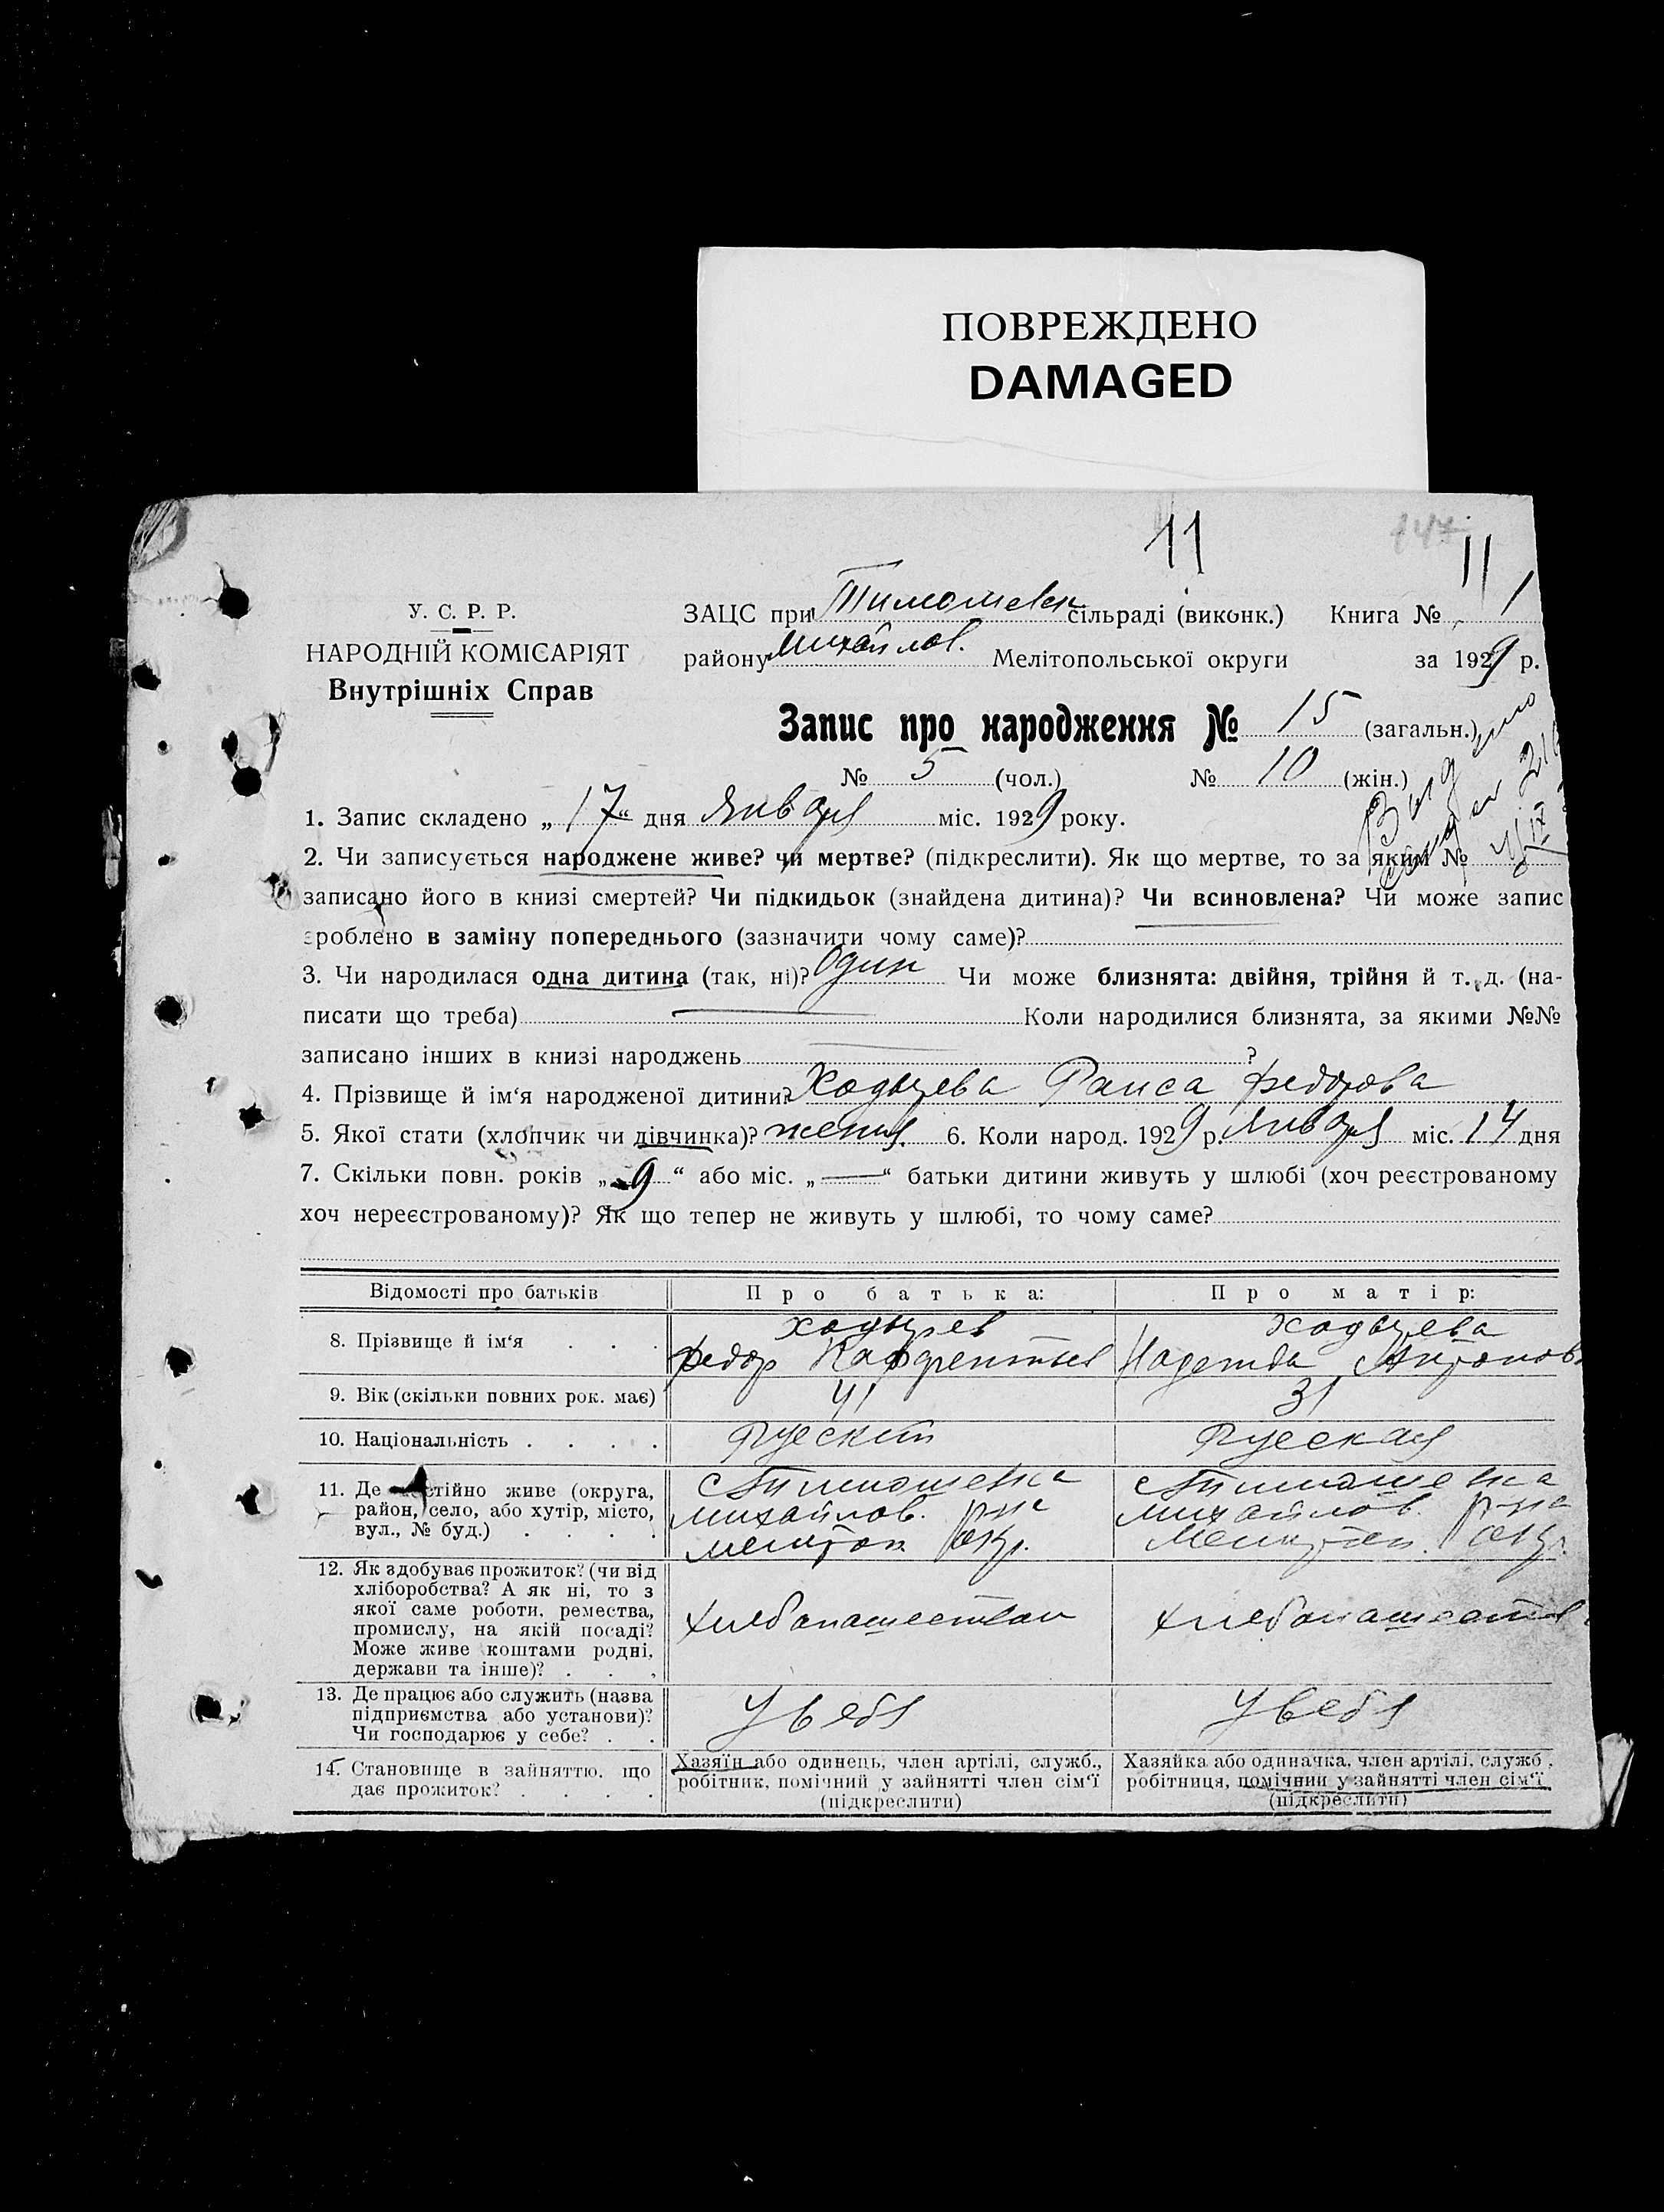 ПОВРЕЖДЕНО
DAMAGED
11
11
У. С. Р. Р.
НАРОДНІЙ КОМІСАРІЯТ
Внутрішніх Справ
ЗАЦС при Тимошевск сільраді (виконк.) Книга № 1
району Михайлов. Мелітопольської округи за 1929 р.
Запис про народження № 15 (загальн.)
№ 5 (чол.) № 10 (жін.)
1. Запис складено „17“ дня Января міс. 1929 року.
2. Чи записується народжене живе? чи мертве? (підкреслити). Як що мертве, то за яким №
записано його в книзі смертей? Чи підкидьок (знайдена дитина)? Чи всиновлена? Чи може запис
зроблено в заміну попереднього (зазначити чому саме)?
3. Чи народилася одна дитина (так, ні)? Один Чи може близнята: двійня, трійня й т. д. (на-
писати що треба) Коли народилися близнята, за якими №№
записано інших в книзі народжень ?
4. Прізвище й ім‘я народженої дитини? Ходырева Раиса Федорова
5. Якої стати (хлопчик чи дівчинка)? женщ. 6. Коли народ. 1929 р. Января міс. 14 дня
7. Скільки повн. років „9“ або міс. „—“ батьки дитини живуть у шлюбі (хоч реєстрованому
хоч нереєстрованому)? Як що тепер не живуть у шлюбі, то чому саме?
Відомості про батьків Про батька: Про матір:
8. Прізвище й ім‘я . . .
Ходырев
Федор
Ходырева
Надежда Антонов
9. Вік (скільки повних рок. має) 41 31
10. Національність . . . . Руский Руская
11. Де постійно живе (округа,
район, село, або хутір, місто,
вул., № буд.) . . . .
с Тимошевка
Михайлов. р-на
Мелитоп. окр.
с Тимошевка
Михайлов. р-на
Мелитоп. окр.
12. Як здобуває прожиток? (чи від
хліборобства? А як ні, то з
якої саме роботи, ремества,
промислу, на якій посаді?
Може живе коштами родні,
держави та інше)? . . .
Хлебопашеством
Хлебопашеств
13. Де працює або служить (назва
підприємства або установи)?
Чи господарює у себе? . .
У себя
У себя
14. Становище в зайняттю, що
дає прожиток? . . . .
Хазяїн або одинець, член артілі, служб.,
робітник, помічний у зайнятті член сім‘ї
(підкреслити)
Хазяйка або одиначка, член артілі, служб.,
робітниця, помічний у зайнятті член сім‘ї
(підкреслити)